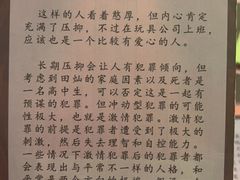 这样的人看着憨厚，但内心肯定
充满了压抑，不过在玩具公司上班，
应该也是一个比较有爱心的人。
长期压抑会让人有犯罪倾向，但
考虑到田灿的家庭因素以及死者是
一名高中生，可以否定这是一起有
预谋的犯罪。但冲动型犯罪的可能
性极大，也就是激情犯罪。激情犯
罪的前提是犯罪者遭受到了极大的
刺激，然后失去理智和自控能力。
一些情况下激情犯罪后的犯罪者都
会表现出与平常不一样的人格，和